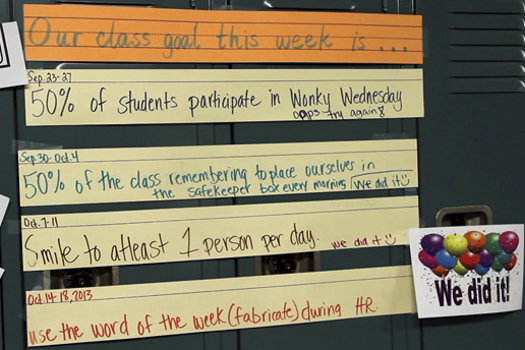 Our class goal this week is ...
Sep. 23-27
50% of students participate in Wonky Wednesday
oops try again
Sep. 30-Oct. 4
50% of the class remembering to place ourselves in
the safekeeper box every morning we did it
Oct. 7-11
Smile to atleast 1 person per day. we did it
Oct. 14 18, 2013
use the word of the week (fabricate) during HR.
We did it!